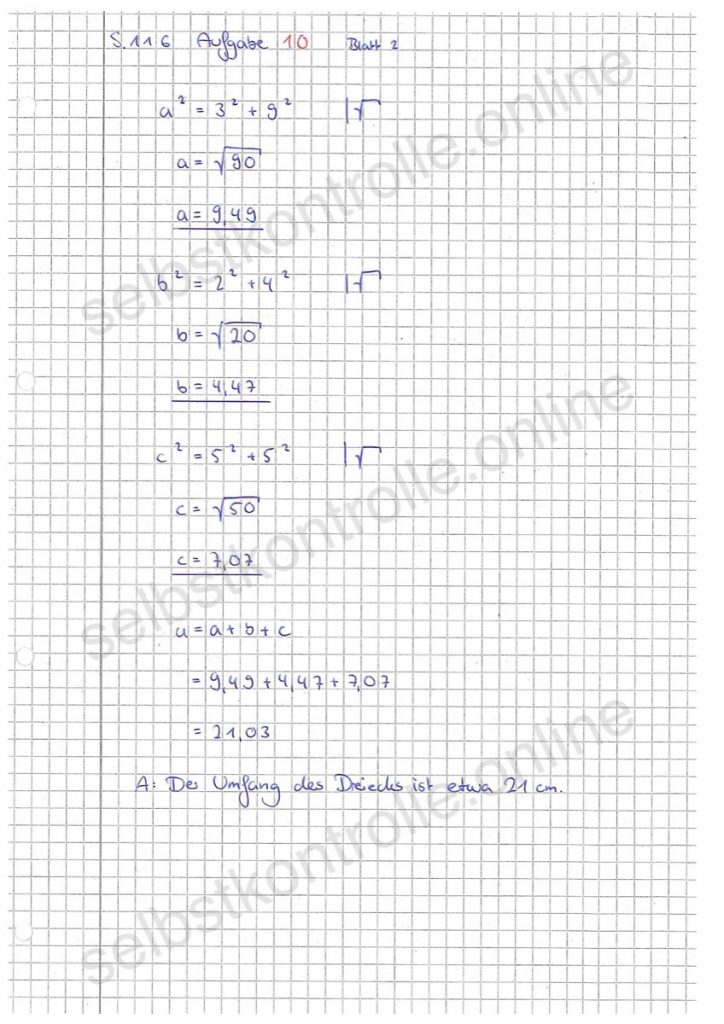 S. 116 Aufgabe 10 Blatt 2
a² = 3² + 9² |√
a = √90
a = 9,49
b² = 2² + 4² |√
b = √20
b = 4,47
c² = 5² + 5² |√
c = √50
c = 7,07
u = a + b + c
= 9,49 + 4,47 + 7,07
= 21,03
A: Der Umfang des Dreiecks ist etwa 21 cm.
selbstkontrolle.online
selbstkontrolle.online
selbstkontrolle.online